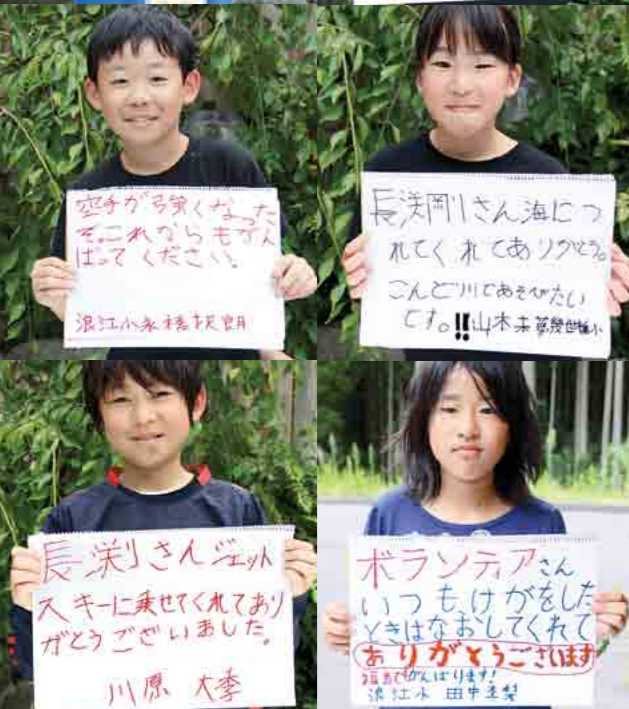 空手が強くなった
ぞ。これからもがん
ばってください。
浪江小
長渕剛さん海につ
れてくれてありがとう。
こんど川であそびたい
です。!!山本
長渕さんジェット
スキーに乗せてくれてあり
がとうございました。
川原 大季
ボランティアさん
いつもけがをした
ときはなおしてくれて
ありがとうございます
がんばります!
浪江小 田中